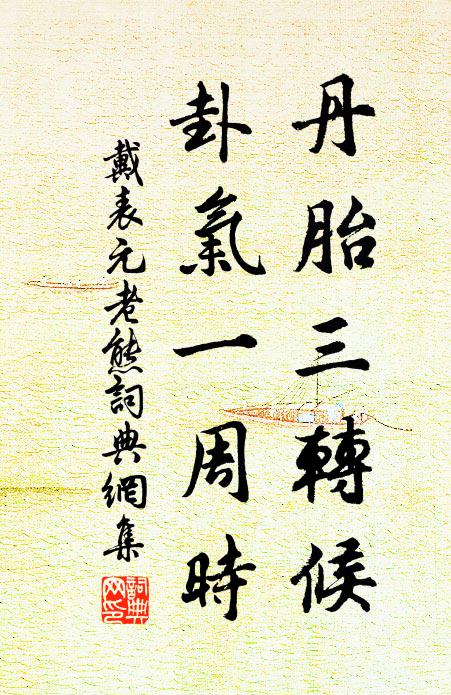 丹胎三轉候
卦氣一周時
戴表元老熊詞典網集
詞典网印